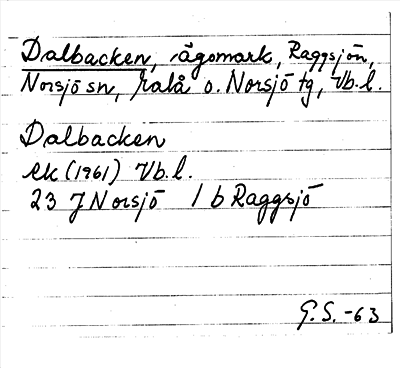 Dalbacken, ägomark, Raggsjön,
Norsjö sn, Malå o. Norsjö tg, Vb.l.
Dalbacken
ek (1961) Vb.l.
23 J Norsjö 1 b Raggsjö
G.S. -63